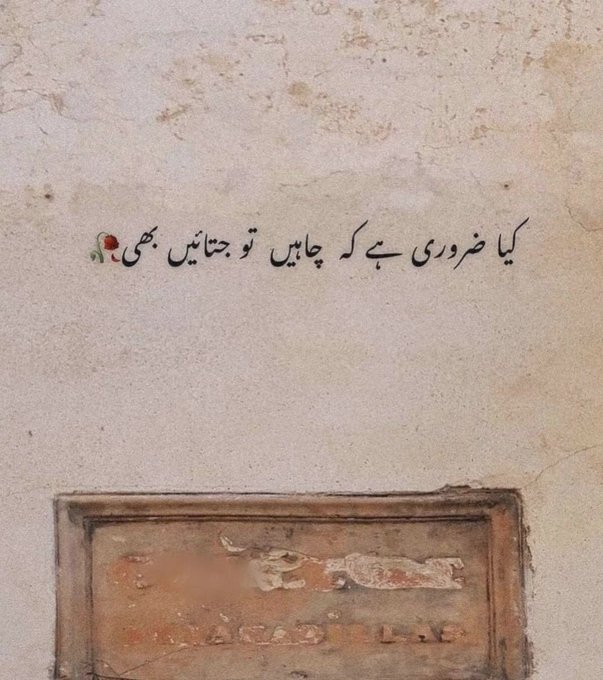 کیا ضروری ہے کہ چاہیں تو جتائیں بھی🥀